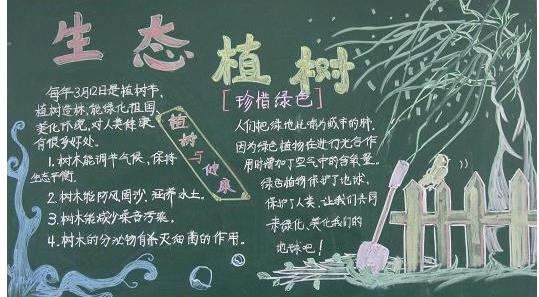 生态植树
每年3月12日是植树节。
植树造林,能绿化祖国
美化环境,对人类健康
有很多好处。
1.树木能调节气候、保持
生态平衡
2.树木能防风固沙,涵养水土。
3.树木能减少噪音污染。
4.树木的分泌物有杀灭细菌的作用。
植树与健康
[珍惜绿色]
人们把绿地比喻为城市的肺,
因为绿色植物在进行光合作
用时增加了空气中的含氧量。
绿色植物保护了地球,
保护了人类,让我们共同
来绿化、美化我们的
地球吧!